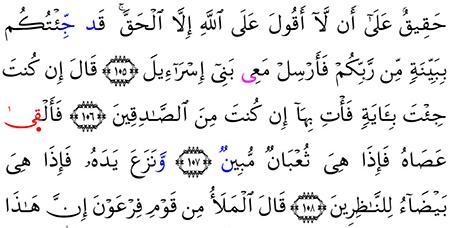 حَقِيقٌ عَلَىٰٓ أَن لَّآ أَقُولَ عَلَى ٱللَّهِ إِلَّا ٱلْحَقَّ ۚ قَد جِّئْتُكُم
بِبَيِّنَةٍ مِّن رَّبِّكُمْ فَأَرْسِلْ مَعِى بَنِىٓ إِسْرَٰٓءِيلَ ١٠٥ قَالَ إِن كُنتَ
جِئْتَ بِـَٔايَةٍ فَأْتِ بِهَآ إِن كُنتَ مِنَ ٱلصَّـٰدِقِينَ ١٠٦ فَأَلْقَىٰ
عَصَاهُ فَإِذَا هِىَ ثُعْبَانٌ مُّبِينٌ ١٠٧ وَّنَزَعَ يَدَهُۥ فَإِذَا هِىَ
بَيْضَآءُ لِلنَّـٰظِرِينَ ١٠٨ قَالَ ٱلْمَلَأُ مِن قَوْمِ فِرْعَوْنَ إِنَّ هَـٰذَا